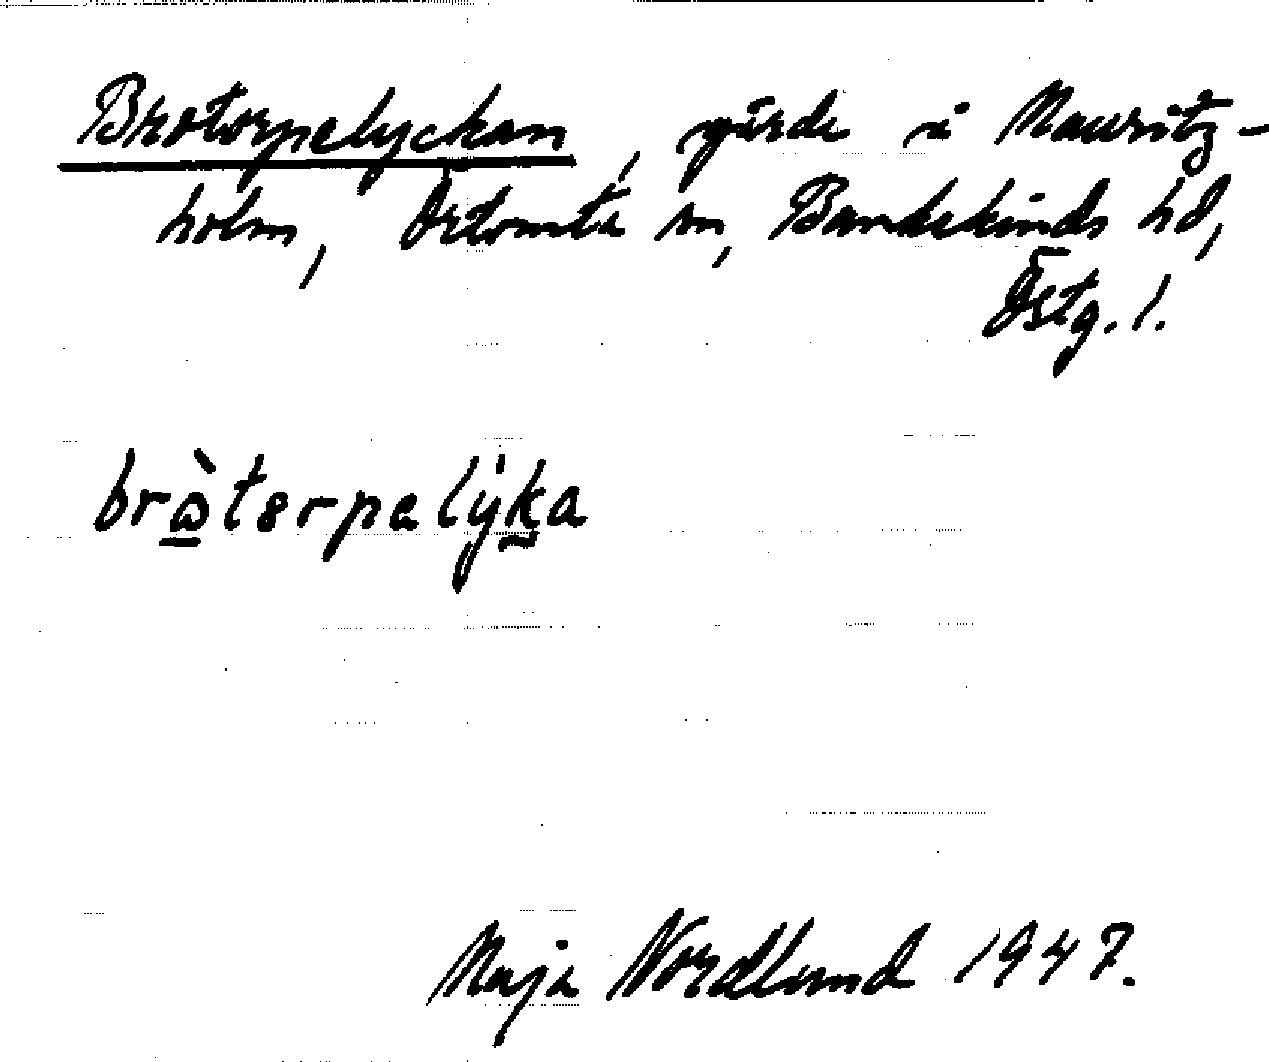 Brotorpelyckan, gärde i Mauritz-
holm, Örtomta sn, Bankekinds hd,
Östg. l.
bròtɘrpelýka
Maja Nordlund 1947.